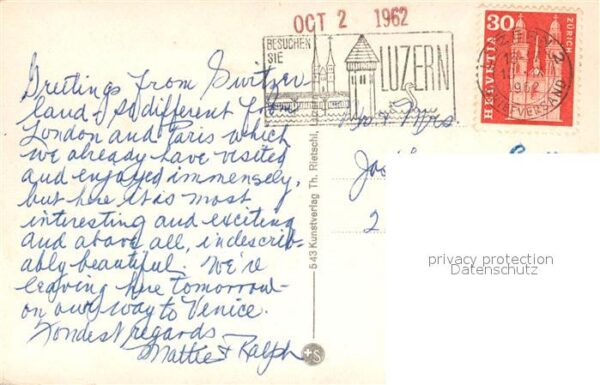 OCT 2 1962
BESUCHEN
SIE
LUZERN
30
HELVETIA
ZÜRICH
BRIEFVERSAND
Greetings from Switzer-
land & so different from
London and Paris which
we already have visited
and enjoyed immensely,
but here it is most
interesting and exciting
and above all, indescrib-
ably beautiful. We've
leaving here tomorrow-
on our way to Venice.
Fondest regards
Mattie & Ralph
Mr & Mrs.
2
543 Kunstverlag Th. Rietschi,
+S
privacy protection
Datenschutz